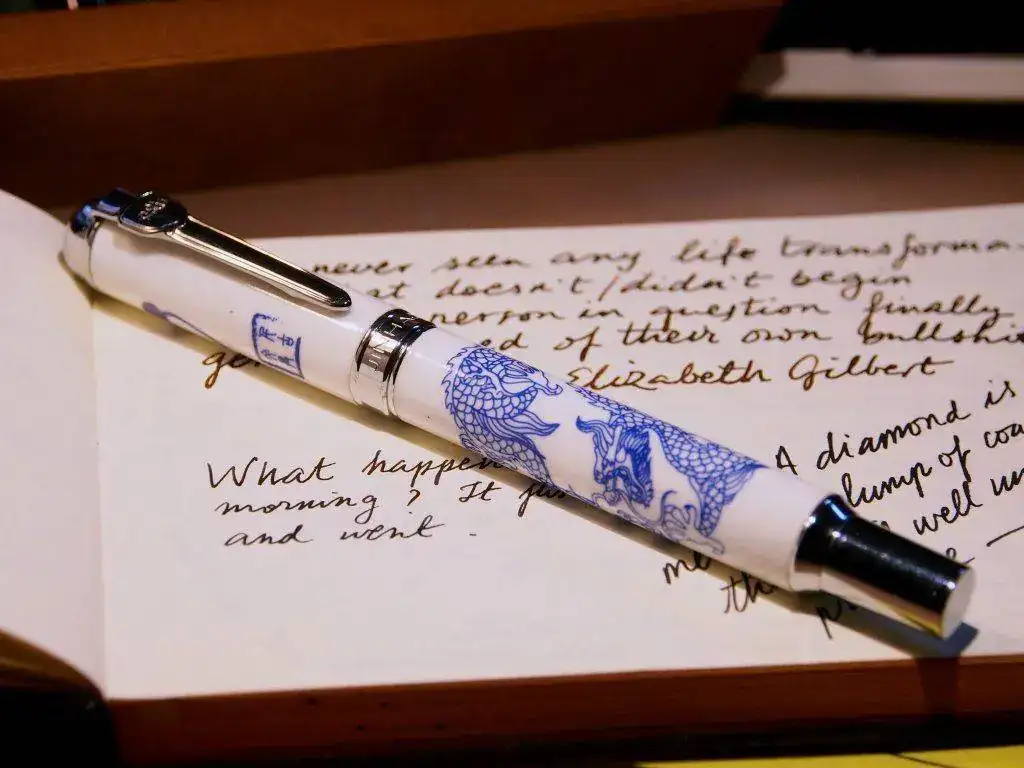 never seen any life transforma-
at doesn't/didn't begin
person in question finally
ed of their own bullshi
Elizabeth Gilbert
What happen
morning ? It jus
and went .
A diamond is
lump of coa
well
me
th
JINHAO